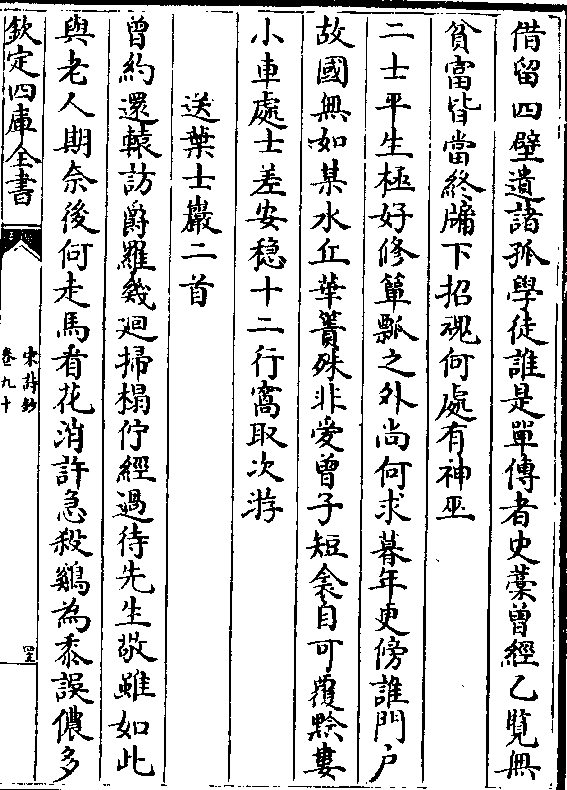 借留四壁遺諸孤學徒誰是單傳者史藁曾經乙覧無
貧富皆當終牖下招魂何處有神巫
二士平生極好修簞瓢之外尚何求暮年更傍誰門户
故國無如某水丘華簀殊非愛曾子短衾自可覆黔婁
小車處士差安穏十二行窩取次游
送葉士巖二首
曾約還轅訪爵羅幾廻掃榻佇經過待先生敬雖如此
與老人期奈後何走馬看花消許急殺鷄為黍誤儂多
欽定四庫全書
宋詩鈔
卷九十